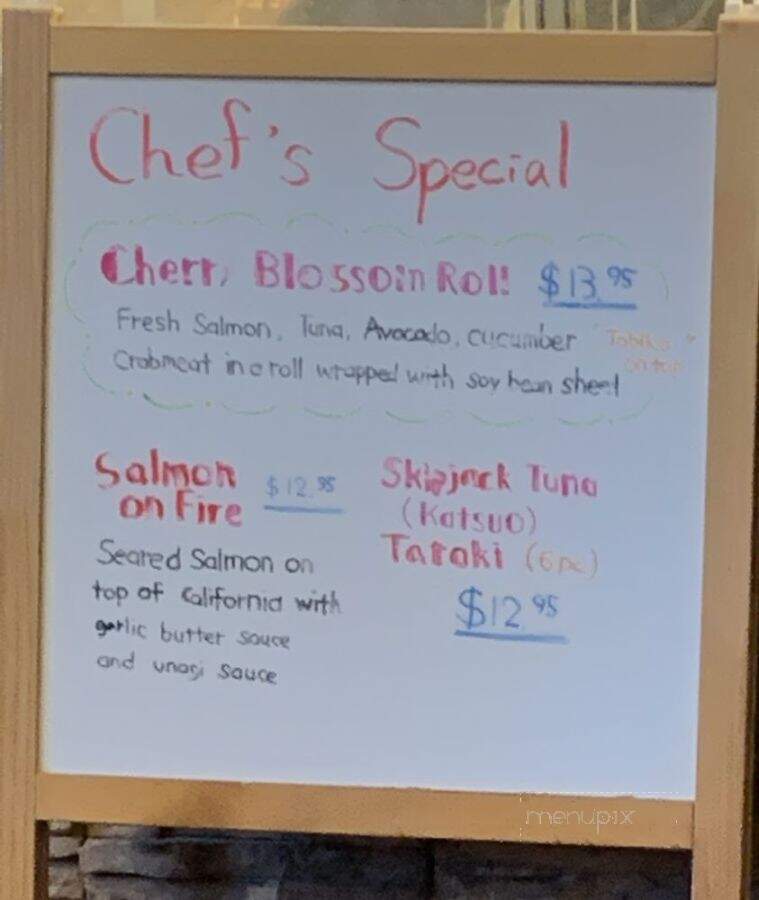 Chef's Special
Cherry Blossom Roll $13.95
Fresh Salmon, Tuna, Avocado, cucumber "Tobiko
on top"
Crabmeat in a roll wrapped with soy bean sheet
Salmon
on Fire $12.95
Seared Salmon on
top of California with
garlic butter sauce
and unagi sauce
Skipjack Tuna
(Katsuo)
Tataki (6pc)
$12.95
menupix